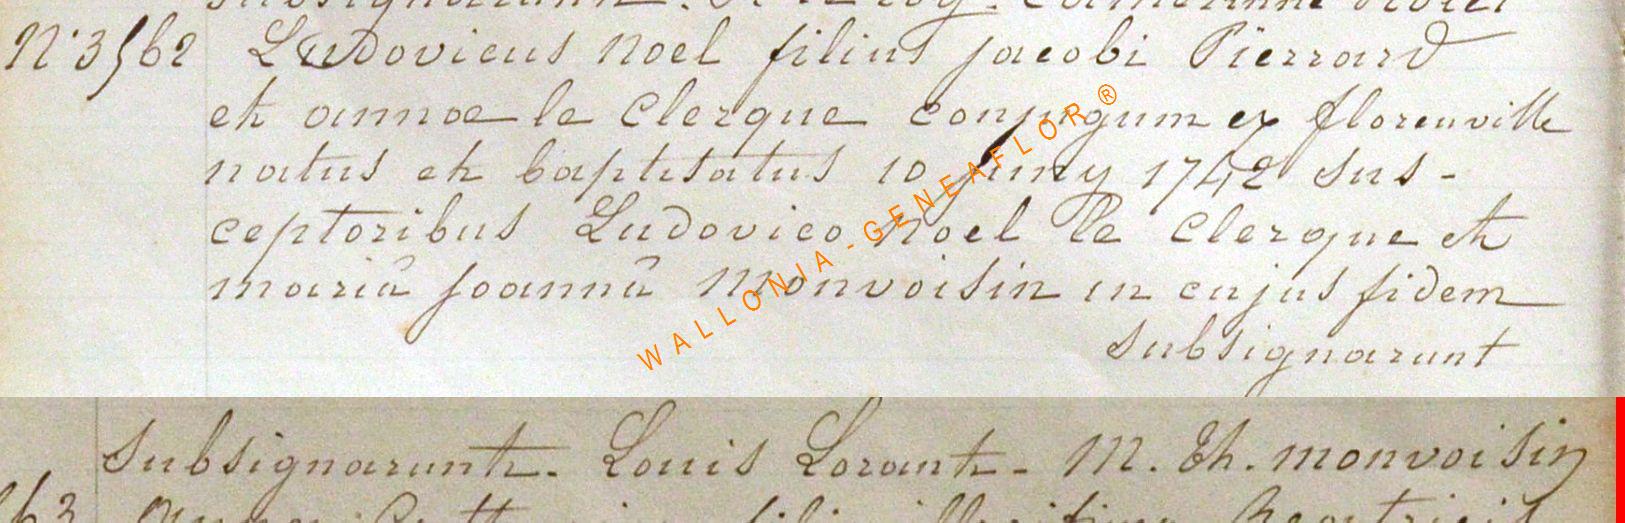 subsignarunt.
N° 3562 Ludovicus noel filius jacobi Pierrard
et annae le Clerque conjugum ex florenville
natus et baptisatus 10 juny 1742 sus-
ceptoribus Ludovico noel le Clerque et
mariâ joannâ Monvoisin in cujus fidem
subsignarunt
WALLONIA-GENEAFLOR®
subsignarunt. Louis Lorant. M. Th. monvoisin
63